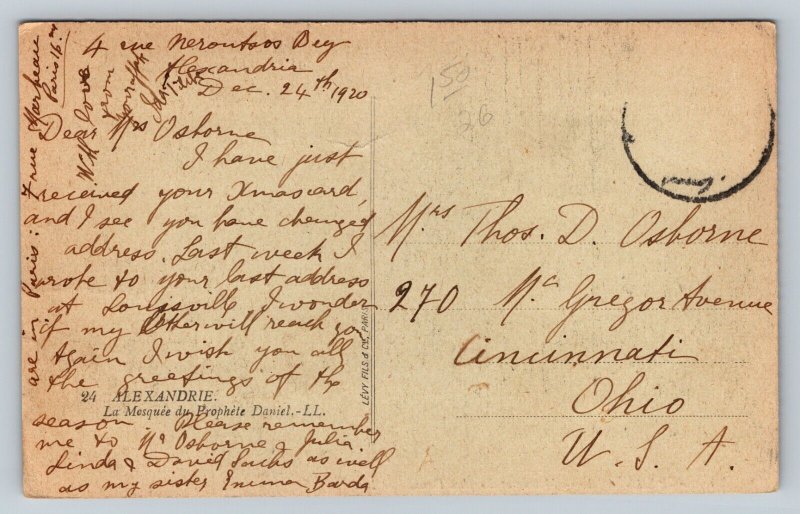 4 rue Neroutsos Bey
Alexandria
Dec. 24th 1920
Dear Mrs Osborne
I have just
received your Xmascard,
and I see you have changed
address. Last week I
wrote to your last address
at Louisville, I wonder
if my letter will reach you
Again I wish you all
the greetings of the
season. Please remember
me to Mr Osborne & Julia
Linda & David Sachs as well
as my sister
are in Paris: 7 rue Marbeau
Paris 16.
With love
from
24 ALEXANDRIE.
La Mosquée du Prophète Daniel.-LL.
LÉVY FILS & Cie, PARIS
150
26
Mrs Thos. D. Osborne
270 Mc Gregor Avenue
Cincinnati
Ohio
U. S. A.